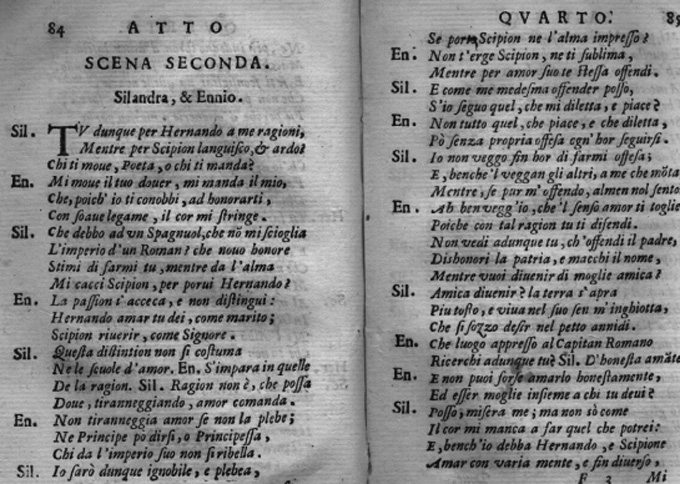 84 ATTO
SCENA SECONDA.
Silandra, & Ennio.
Sil. TV dunque per Hernando a me ragioni,
Mentre per Scipion languisco, & ardo?
Chi ti moue, Poeta, o chi ti manda?
En. Mi moue il tuo douer, mi manda il mio,
Che, poich' io ti conobbi, ad honorarti,
Con soaue legame, il cor mi stringe.
Sil. Che debbo ad vn Spagnuol, che nõ mi scioglia
L'imperio d'un Roman? che nouo honore
Stimi di farmi tu, mentre da l'alma
Mi cacci Scipion, per porui Hernando?
En. La passion t'acceca, e non distingui:
Hernando amar tu dei, come marito;
Scipion riuerir, come Signore.
Sil. Questa distintion non si costuma
Ne le scuole d'amor. En. S'impara in quelle
De la ragion. Sil. Ragion non è, che possa
Doue, tiranneggiando, amor comanda.
En. Non tiranneggia amor se non la plebe;
Ne Principe po dirsi, o Principessa,
Chi da l'imperio suo non si ribella.
Sil. Io sarò dunque ignobile, e plebea,
QVARTO. 85
Se porto Scipion ne l'alma impresso?
En. Non t'erge Scipion, ne ti sublima,
Mentre per amor suo te stessa offendi.
Sil. E come me medesma offender posso,
S'io seguo quel, che mi diletta, e piace?
En. Non tutto quel, che piace, e che diletta,
Pò senza propria offesa ogn'hor seguirsi.
Sil. Io non veggo fin hor di farmi offesa;
E, benche'l veggan gli altri, a me che mõta
Mentre, se pur m'offendo, almen nol sento
En. Ah ben vegg'io, che'l senso amor ti toglie
Poiche con tal ragion tu ti difendi.
Non vedi adunque tu, ch'offendi il padre,
Dishonori la patria, e macchi il nome,
Mentre vuoi diuenir di moglie amica?
Sil. Amica diuenir? la terra s'apra
Piu tosto, e viua nel suo sen m'inghiotta,
Che si sozzo desir nel petto annidi.
En. Che luogo appresso al Capitan Romano
Ricerchi adunque tu? Sil. D'honesta amãte
En. E non puoi forse amarlo honestamente,
Ed esser moglie insieme a chi tu deui?
Sil. Posso, misera me; ma non sò come
Il cor mi manca a far quel che potrei:
E, bench'io debba Hernando, e Scipione
Amar con varia mente, e fin diuerso,
F 3 Mi